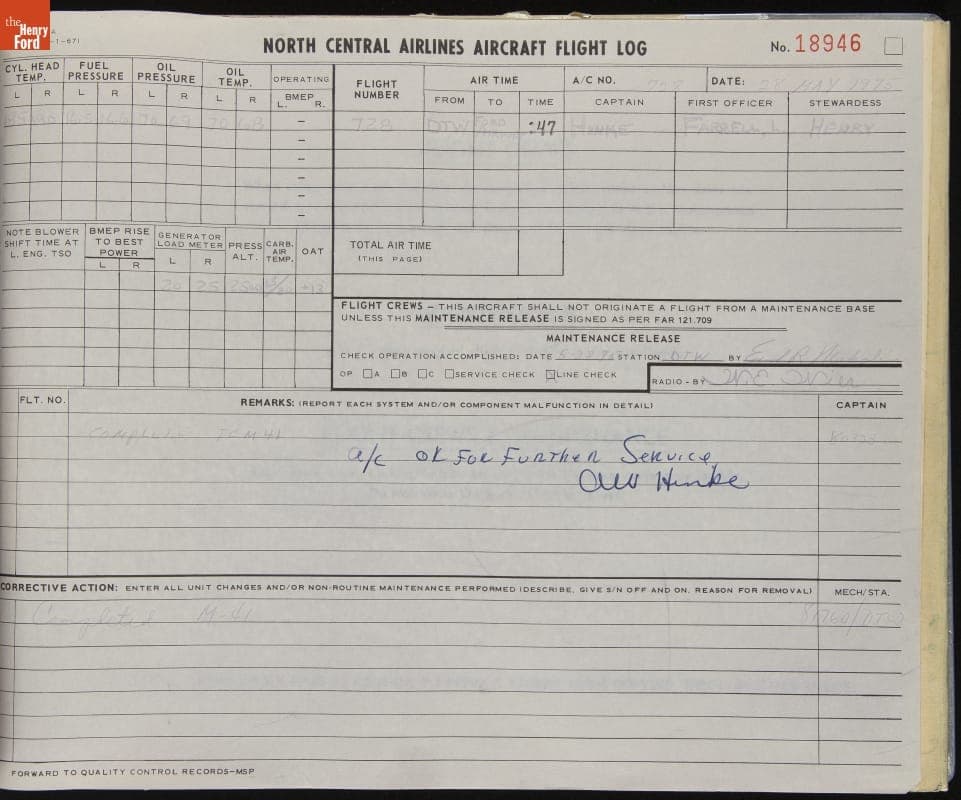 the Henry Ford
-1-67)
NORTH CENTRAL AIRLINES AIRCRAFT FLIGHT LOG
No. 18946
CYL. HEAD TEMP. FUEL PRESSURE OIL PRESSURE OIL TEMP. OPERATING
L R L R L R L R BMEP L. R.
FLIGHT NUMBER AIR TIME A/C NO. 728 DATE: 28 MAY 1975
FROM TO TIME CAPTAIN FIRST OFFICER STEWARDESS
70 69 70 68 – 728 DTW FORD :47 HINKE FARRELL, L HENRY
–
–
–
–
–
NOTE BLOWER SHIFT TIME AT L. ENG. TSO
BMEP RISE TO BEST POWER
L R
GENERATOR LOAD METER
L R
PRESS ALT.
CARB. AIR TEMP.
OAT
20 25 +13
TOTAL AIR TIME
(THIS PAGE)
FLIGHT CREWS – THIS AIRCRAFT SHALL NOT ORIGINATE A FLIGHT FROM A MAINTENANCE BASE
UNLESS THIS MAINTENANCE RELEASE IS SIGNED AS PER FAR 121.709
MAINTENANCE RELEASE
CHECK OPERATION ACCOMPLISHED: DATE 5-28-75 STATION DTW BY
OP A B C SERVICE CHECK LINE CHECK
RADIO - BY
FLT. NO. REMARKS: (REPORT EACH SYSTEM AND/OR COMPONENT MALFUNCTION IN DETAIL) CAPTAIN
COMPLETE TCM 41
a/c OK FOR FURTHER SERVICE
Hinke
CORRECTIVE ACTION: ENTER ALL UNIT CHANGES AND/OR NON-ROUTINE MAINTENANCE PERFORMED (DESCRIBE, GIVE S/N OFF AND ON, REASON FOR REMOVAL) MECH/STA.
Completed M-41
FORWARD TO QUALITY CONTROL RECORDS–MSP